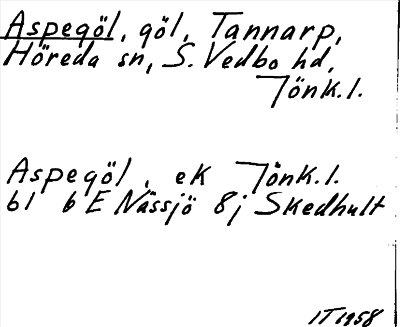 Aspegöl, göl, Tannarp,
Höreda sn, S. Vedbo hd,
Jönk. l.
Aspegöl, ek Jönk. l.
bl 6 E Nässjö 8j Skedhult
IT 1958